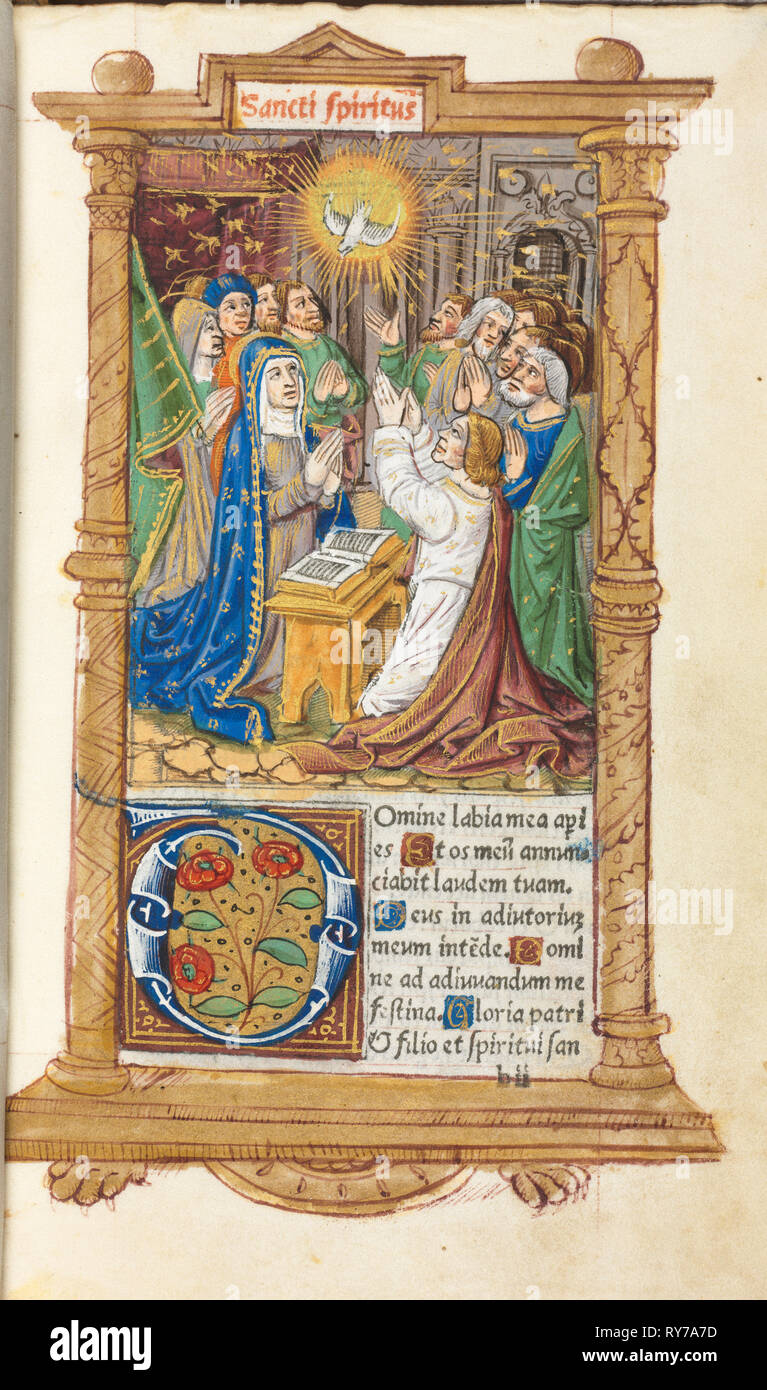 Sancti spiritus̄
Omine labia mea apri
es Et os meū annun
ciabit laudem tuam.
Deus in adiutoriuꝫ
meum intēde. Domi
ne ad adiuvandum me
festina. Gloria patri
& filio et spiritui san
b ii
alamy
Image ID: RY7A7D
www.alamy.com